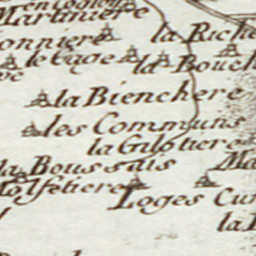 Martiniere
onniere
la Riche
le Cage
la Bouch
la Bienchere
les Communs
la Gilotiere
la Boussais
Ma
Loges Cur
la